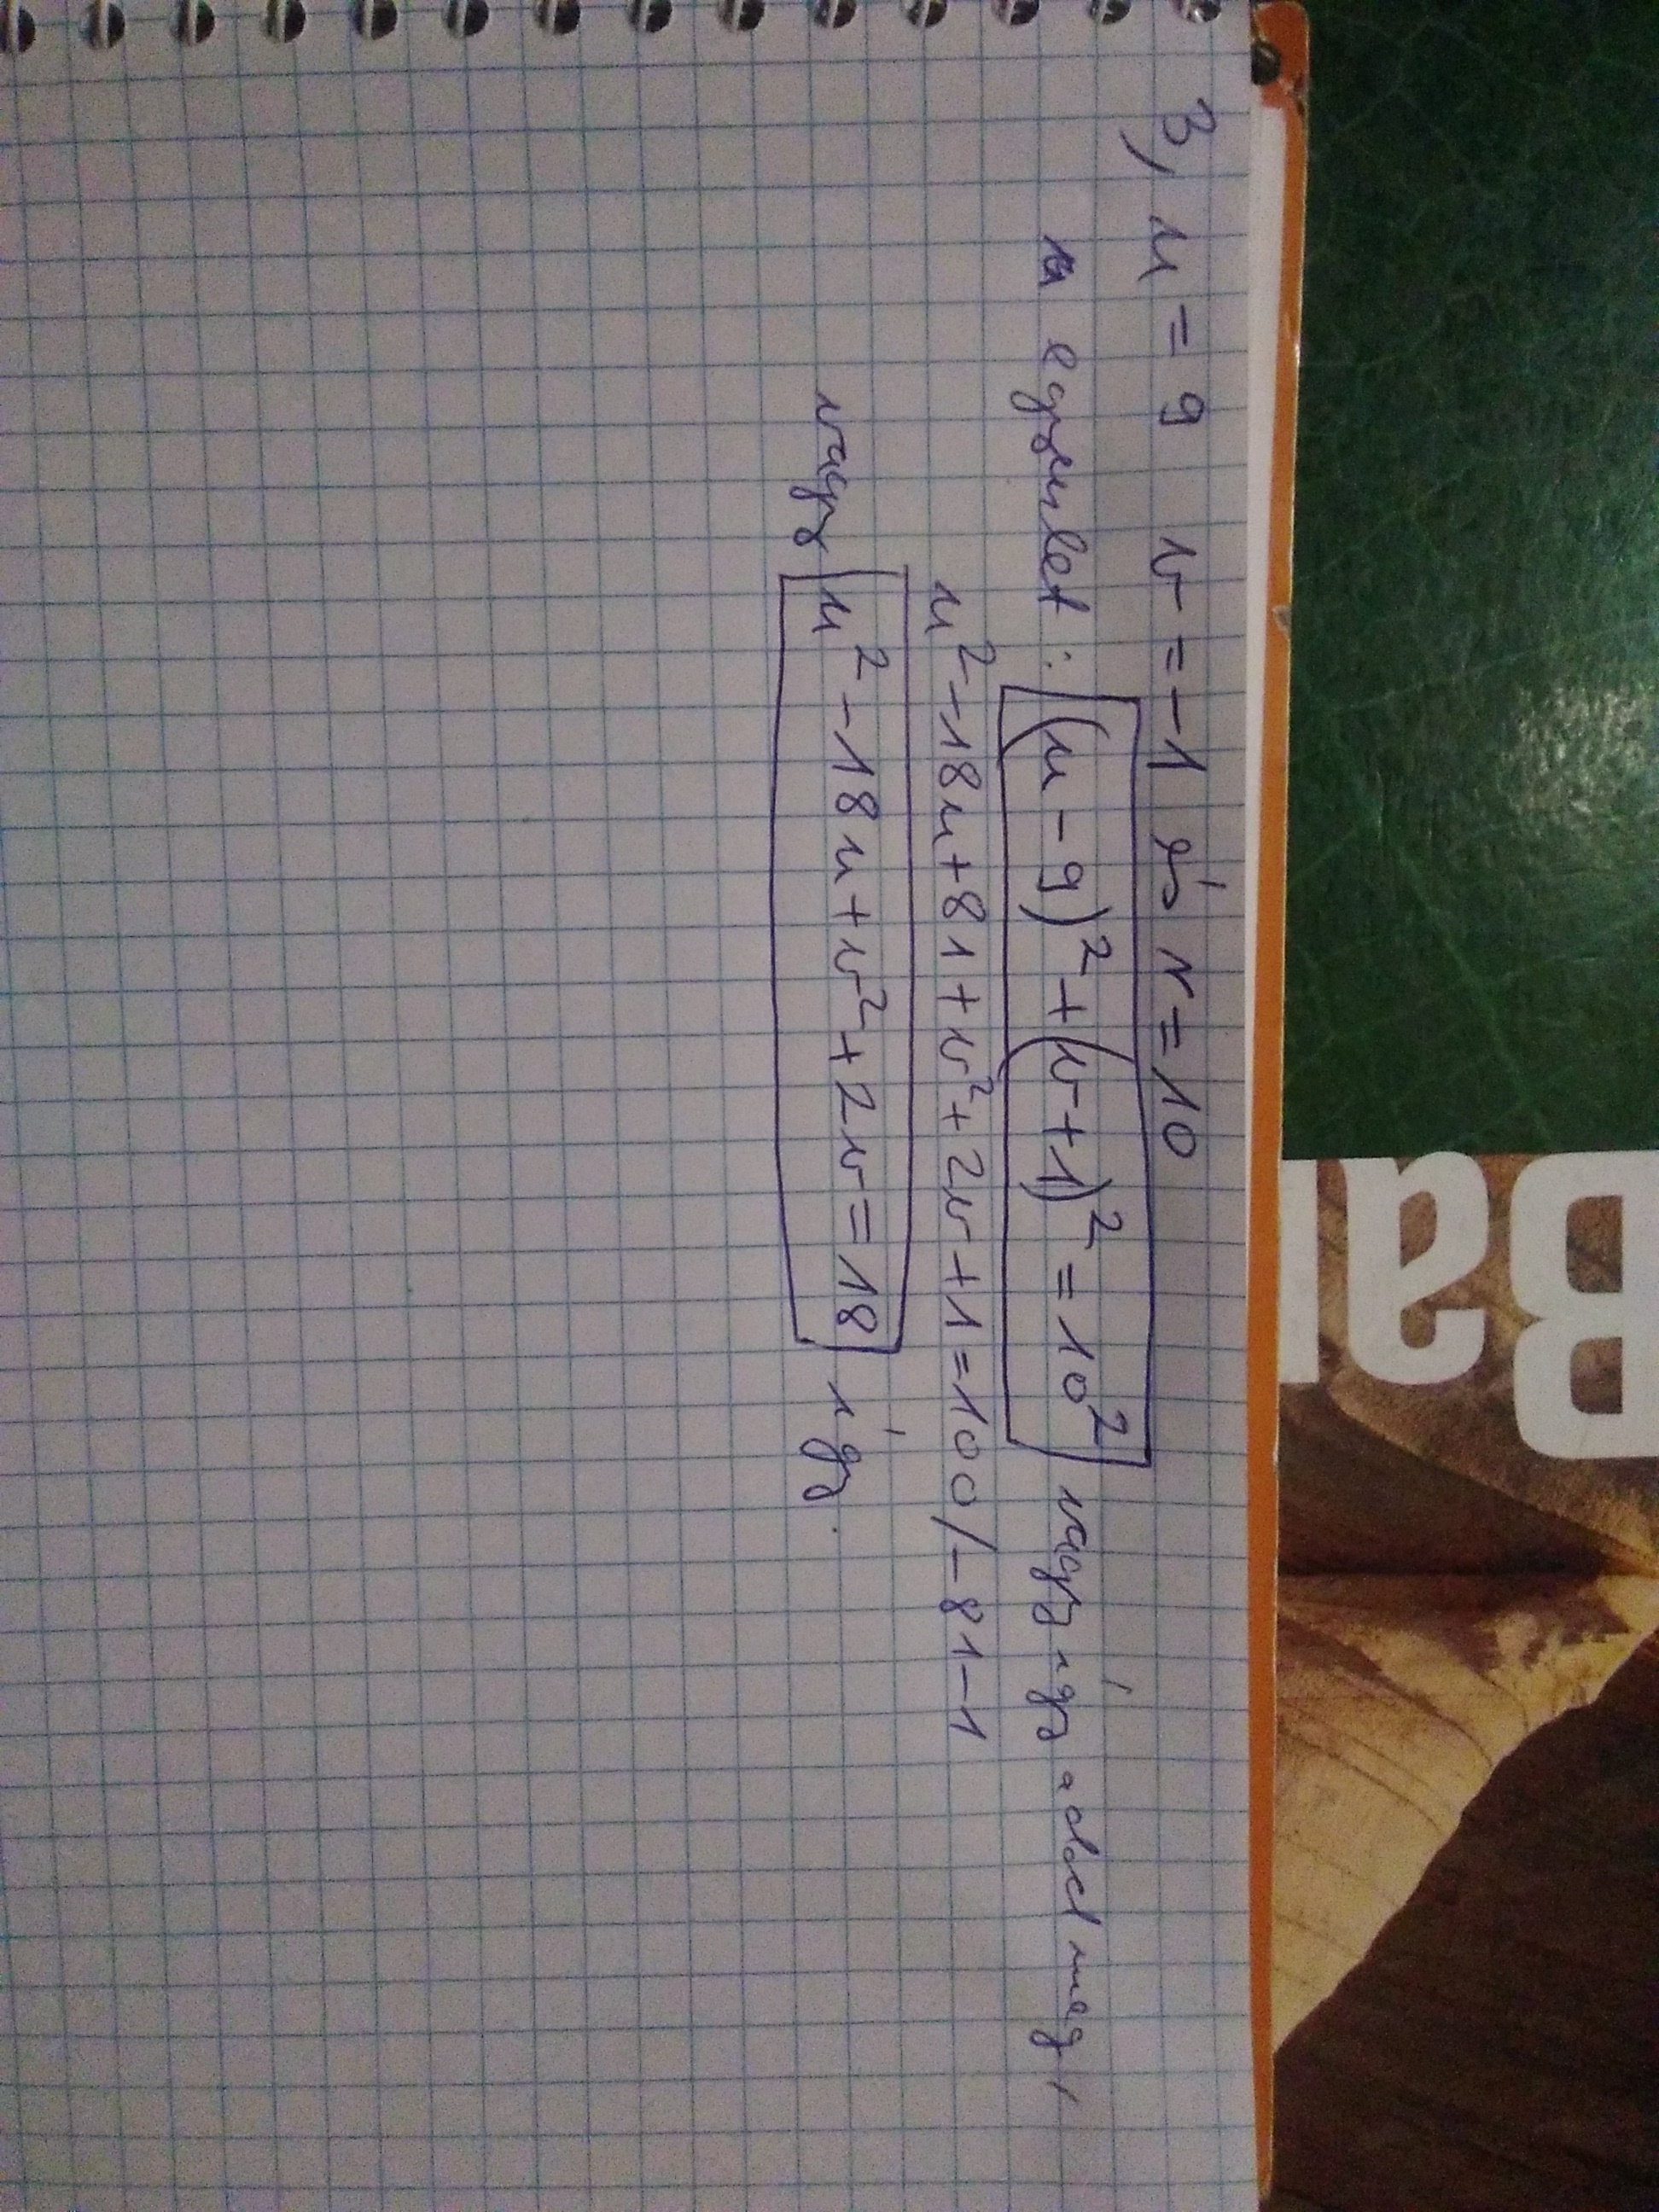 3, u = 9 v = -1 és r = 10
az egyenlet : (u - 9)² + (v + 1)² = 10² vagy így adod meg,
u² - 18u + 81 + v² + 2v + 1 = 100 / - 81 - 1
vagy u² - 18u + v² + 2v = 18 így.
Bal